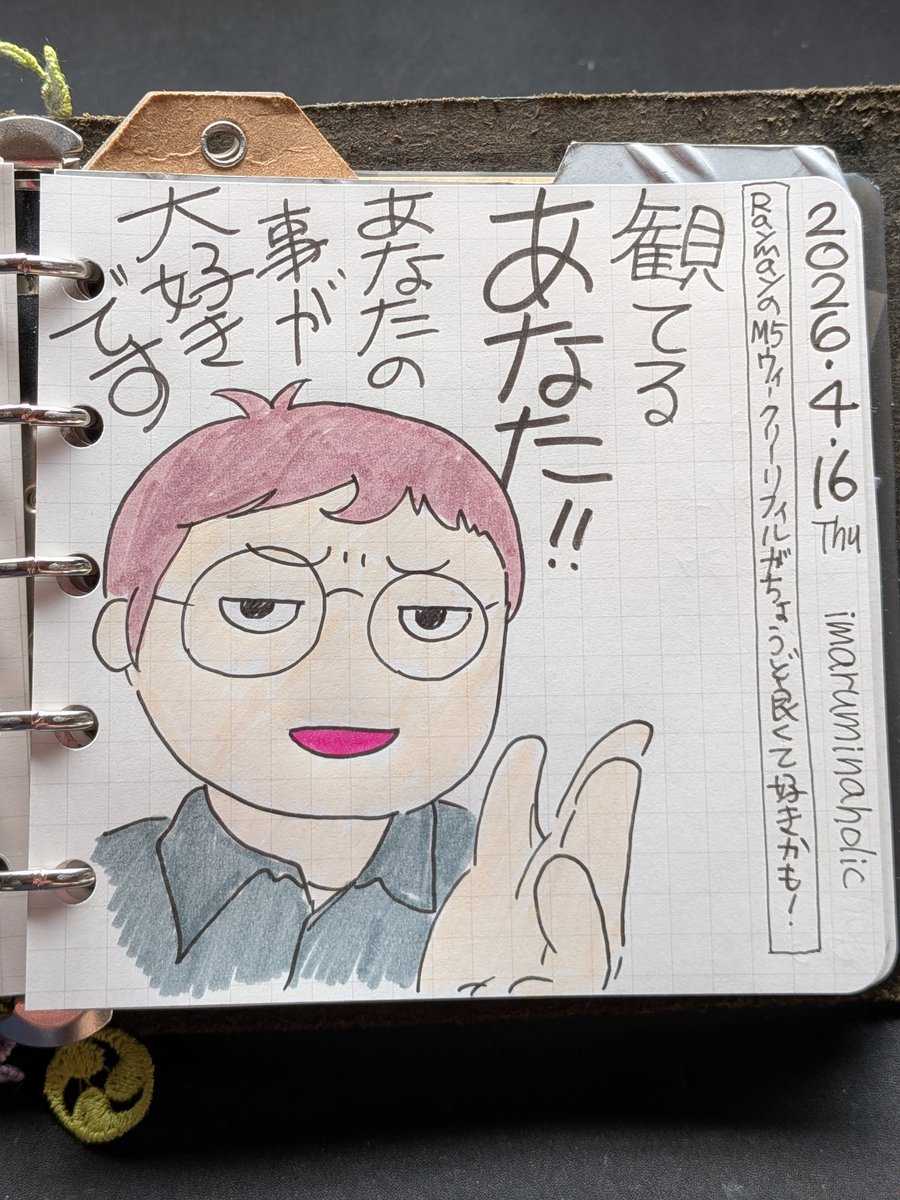 2026.4.16 Thu imaruminaholic
RaymayのM5ウィークリーリフィルがちょうど良くて好きかも!
観てる
あなた!!
あなたの
事が
大好き
です